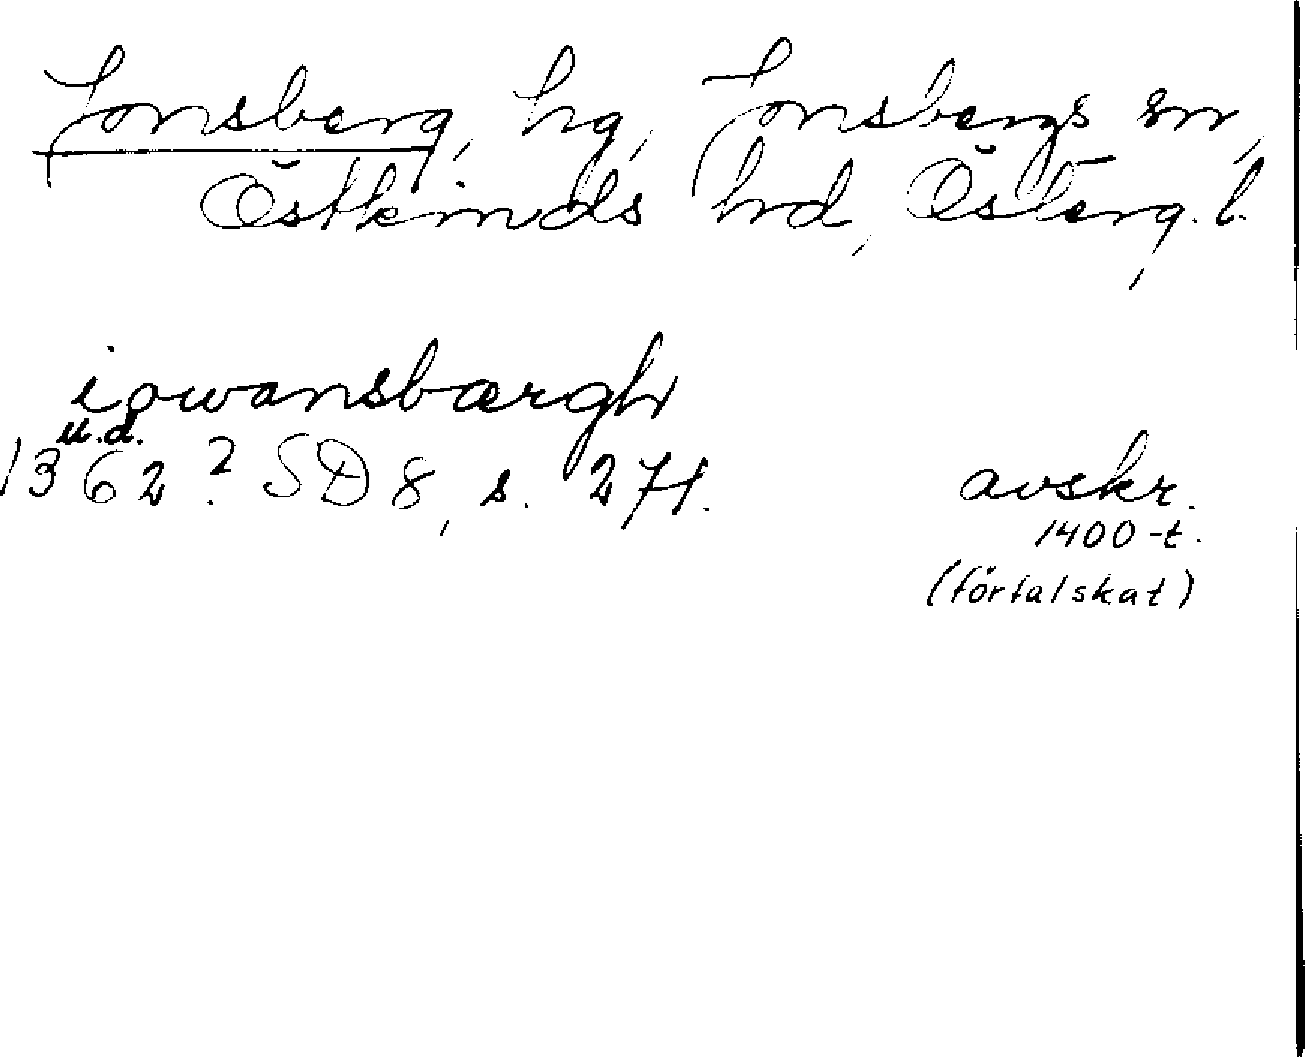 Jonsberg, hg, Jonsbergs sn,
Östkinds hrd, Österg. l.
iowansbærgh
u.d.
1362? SD 8, s. 271.
avskr.
1400-t.
(förfalskat)